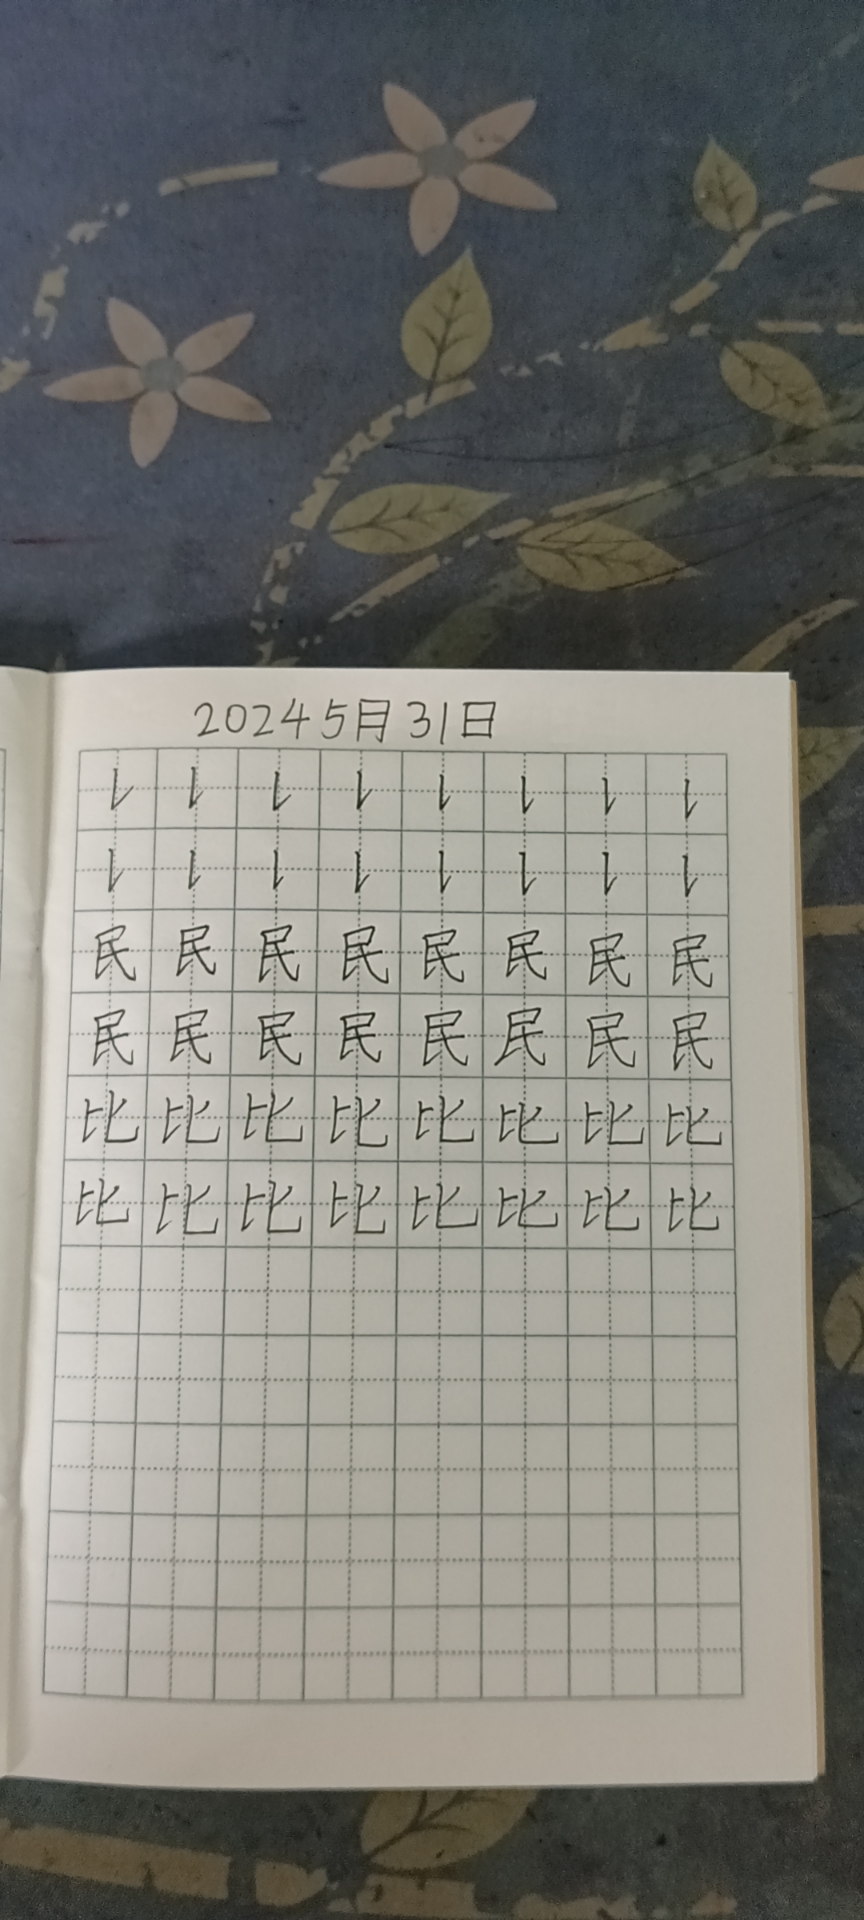 2024 5月31日
𠄌 𠄌 𠄌 𠄌 𠄌 𠄌 𠄌 𠄌
𠄌 𠄌 𠄌 𠄌 𠄌 𠄌 𠄌 𠄌
民 民 民 民 民 民 民 民
民 民 民 民 民 民 民 民
比 比 比 比 比 比 比 比
比 比 比 比 比 比 比 比